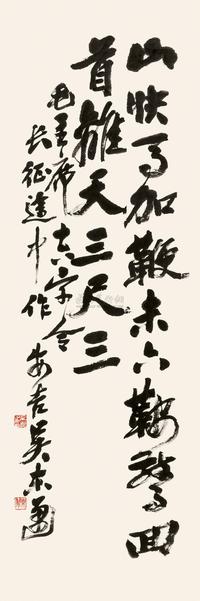 山快马加鞭未下鞍惊回
首离天三尺三
毛主席十六字令
长征途中作 安吉吴东迈